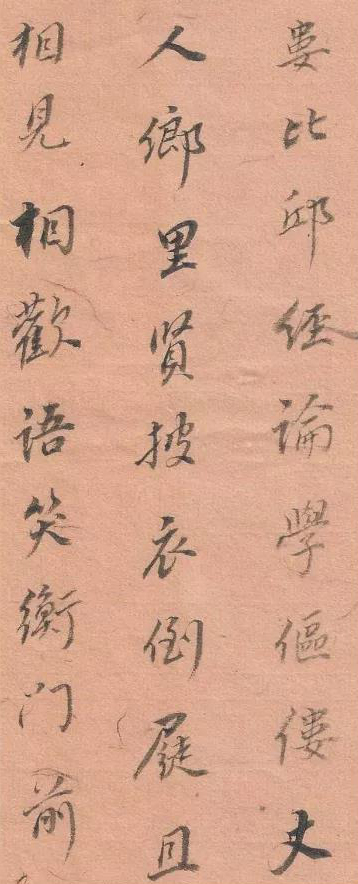 婁比邱經論學傴僂丈
人鄉里賢披衣倒屣且
相見相歡語笑衡門前